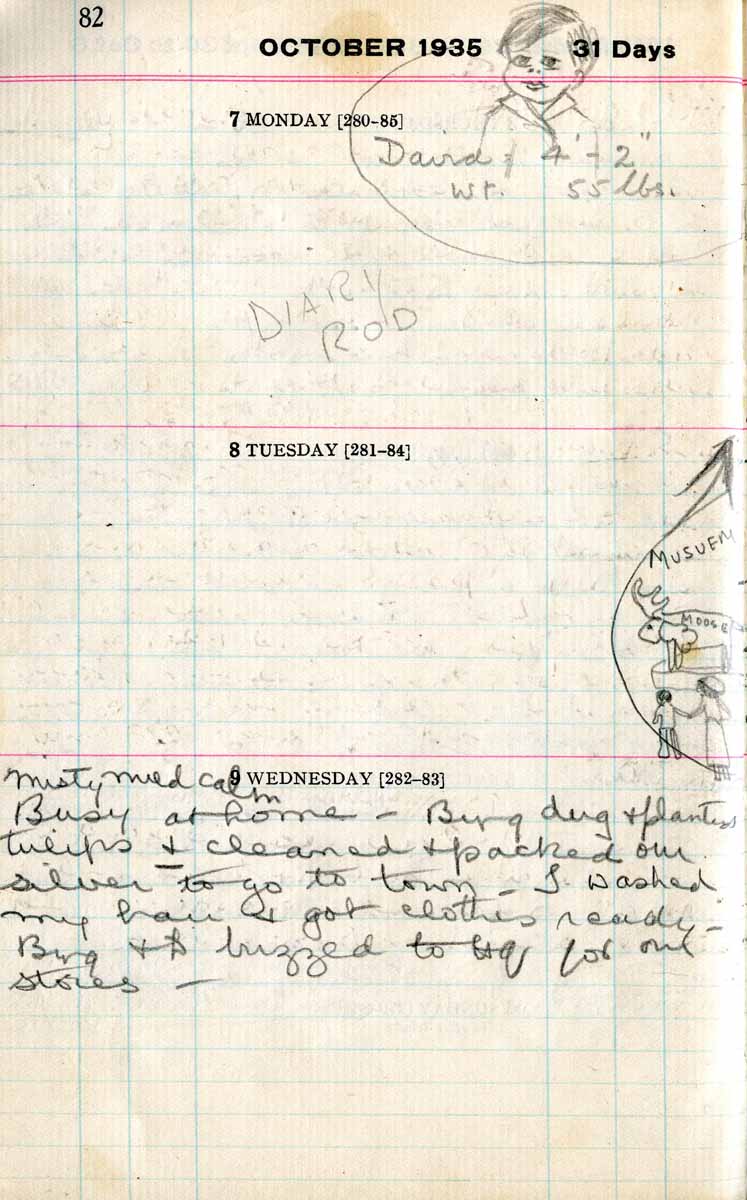 82
OCTOBER 1935 31 Days
7 MONDAY [280-85]
David 4' - 2"
wt. 55 lbs.
DIARY
ROD
8 TUESDAY [281-84]
MUSUEM
MOOSE
9 WEDNESDAY [282-83]
Misty mild calm
Busy at home - Byng dug + planted
tulips & cleaned + packed our
silver to go to town - I washed
my hair & got clothes ready -
Byng + buzzed to Hq for our
stores -